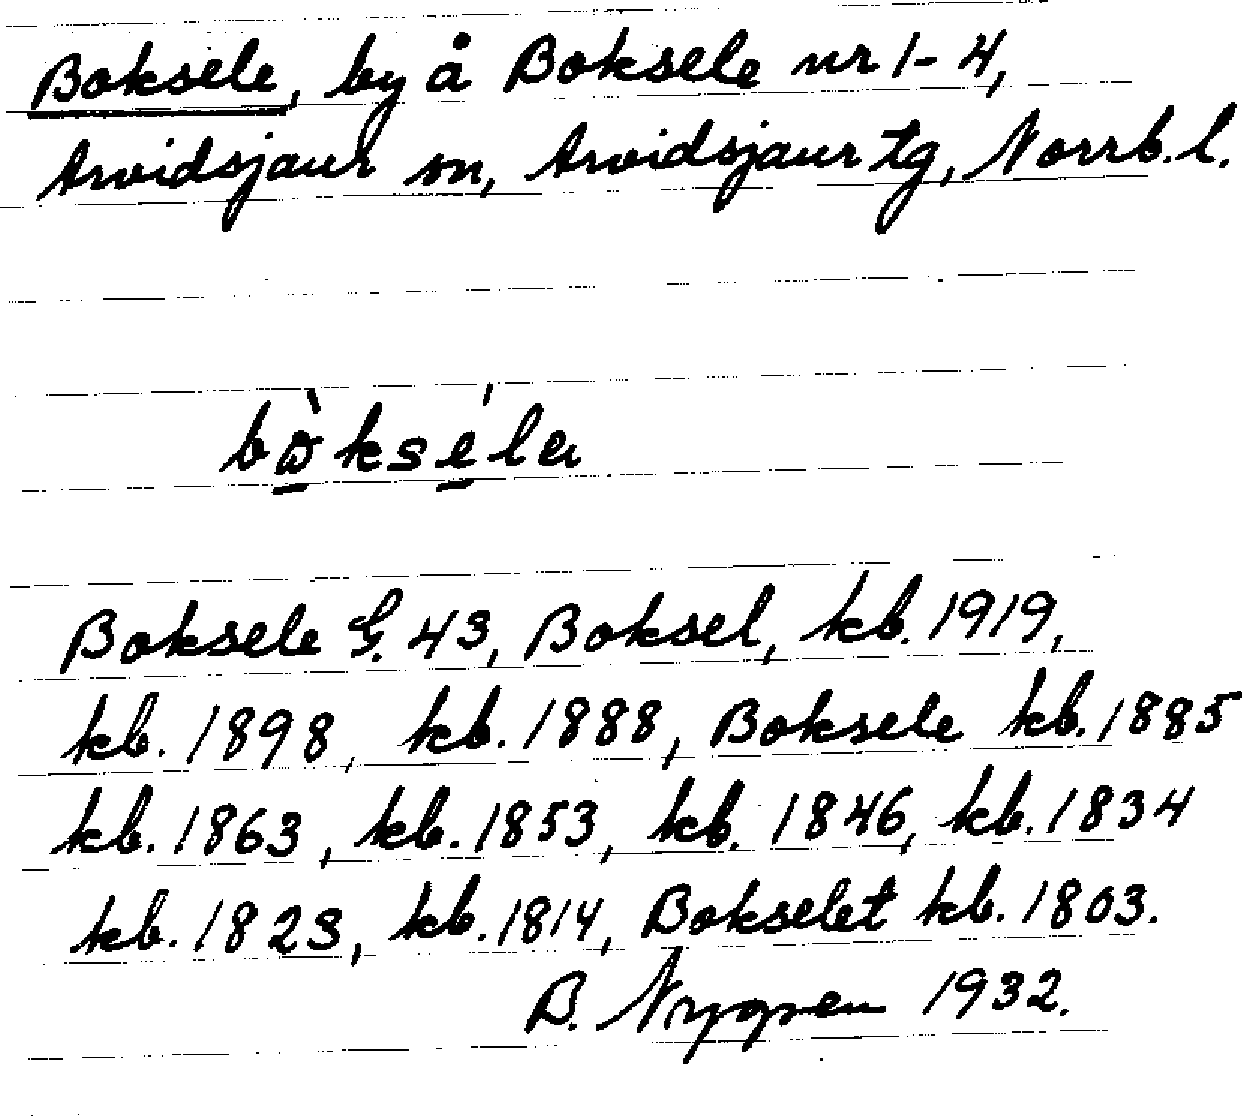 Boksele, by å Boksele nr 1-4,
Arvidsjaur sn, Arvidsjaur tg, Norrb. l.
Boksele G. 43, Boksel, kb. 1919,
kb. 1898, kb. 1888, Boksele kb. 1885
kb. 1863, kb. 1853, kb. 1846, kb. 1834
kb. 1823, kb. 1814, Bokselet kb. 1803.
B. Nygren 1932.